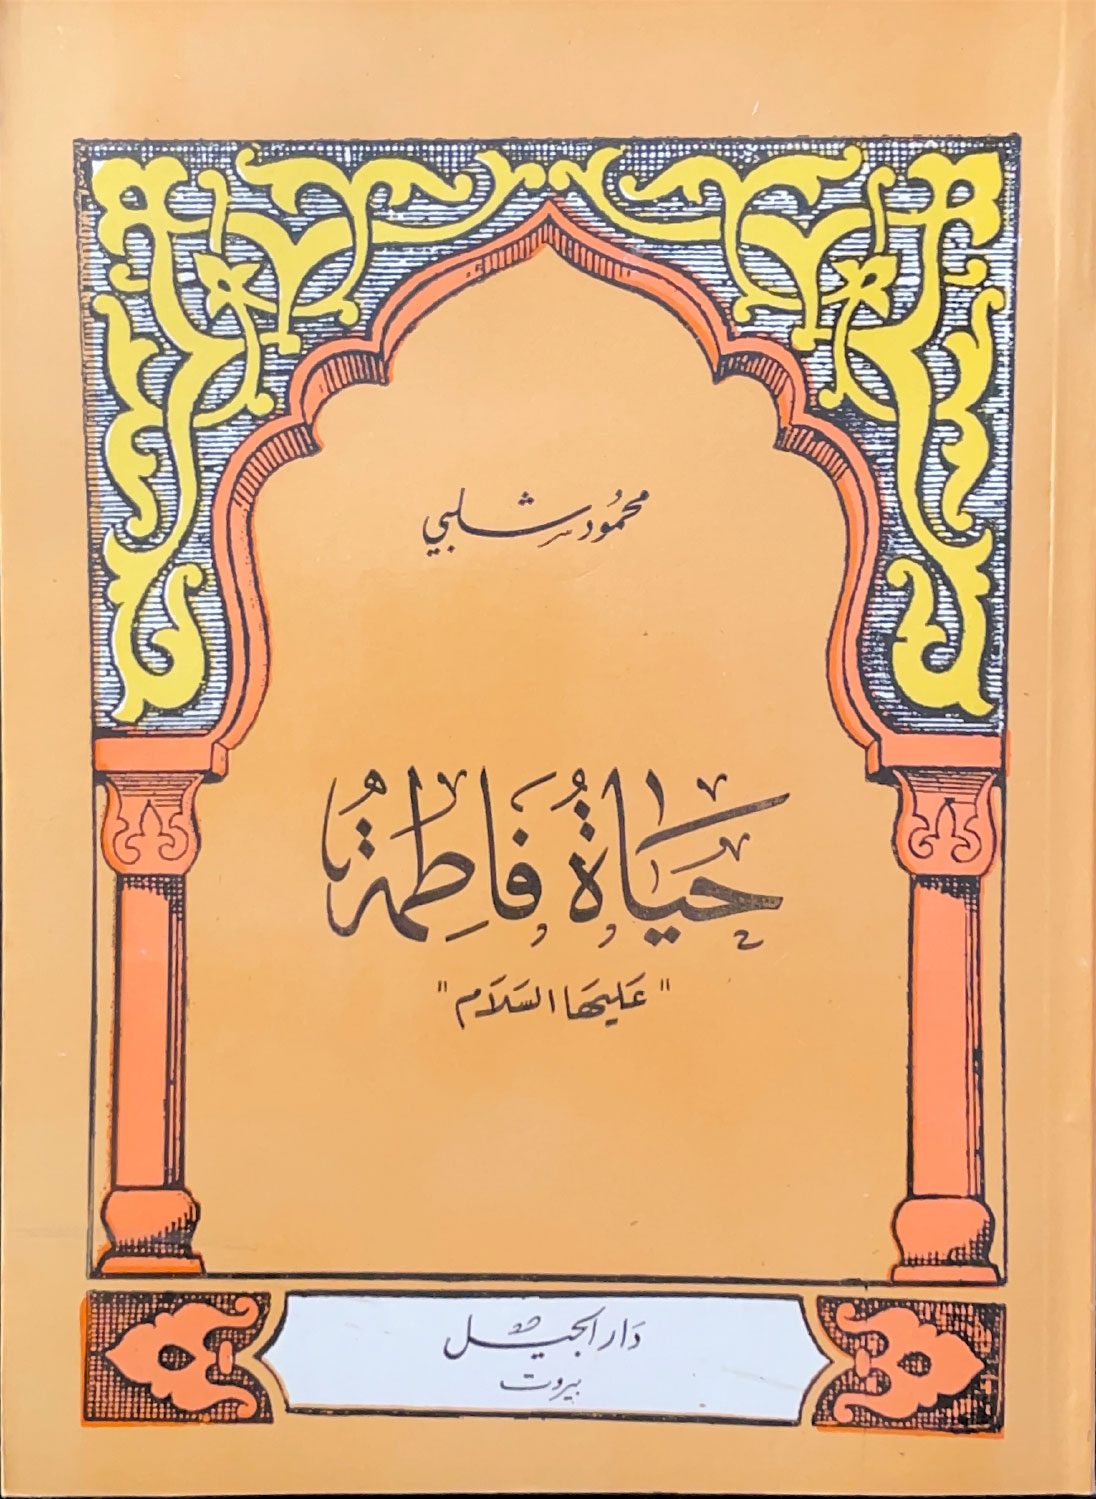 محمُود شلبي
حَيَاةُ فَاطِمَةُ
"عَليهَا السَلاَم"
دَار الجيل
بيروت